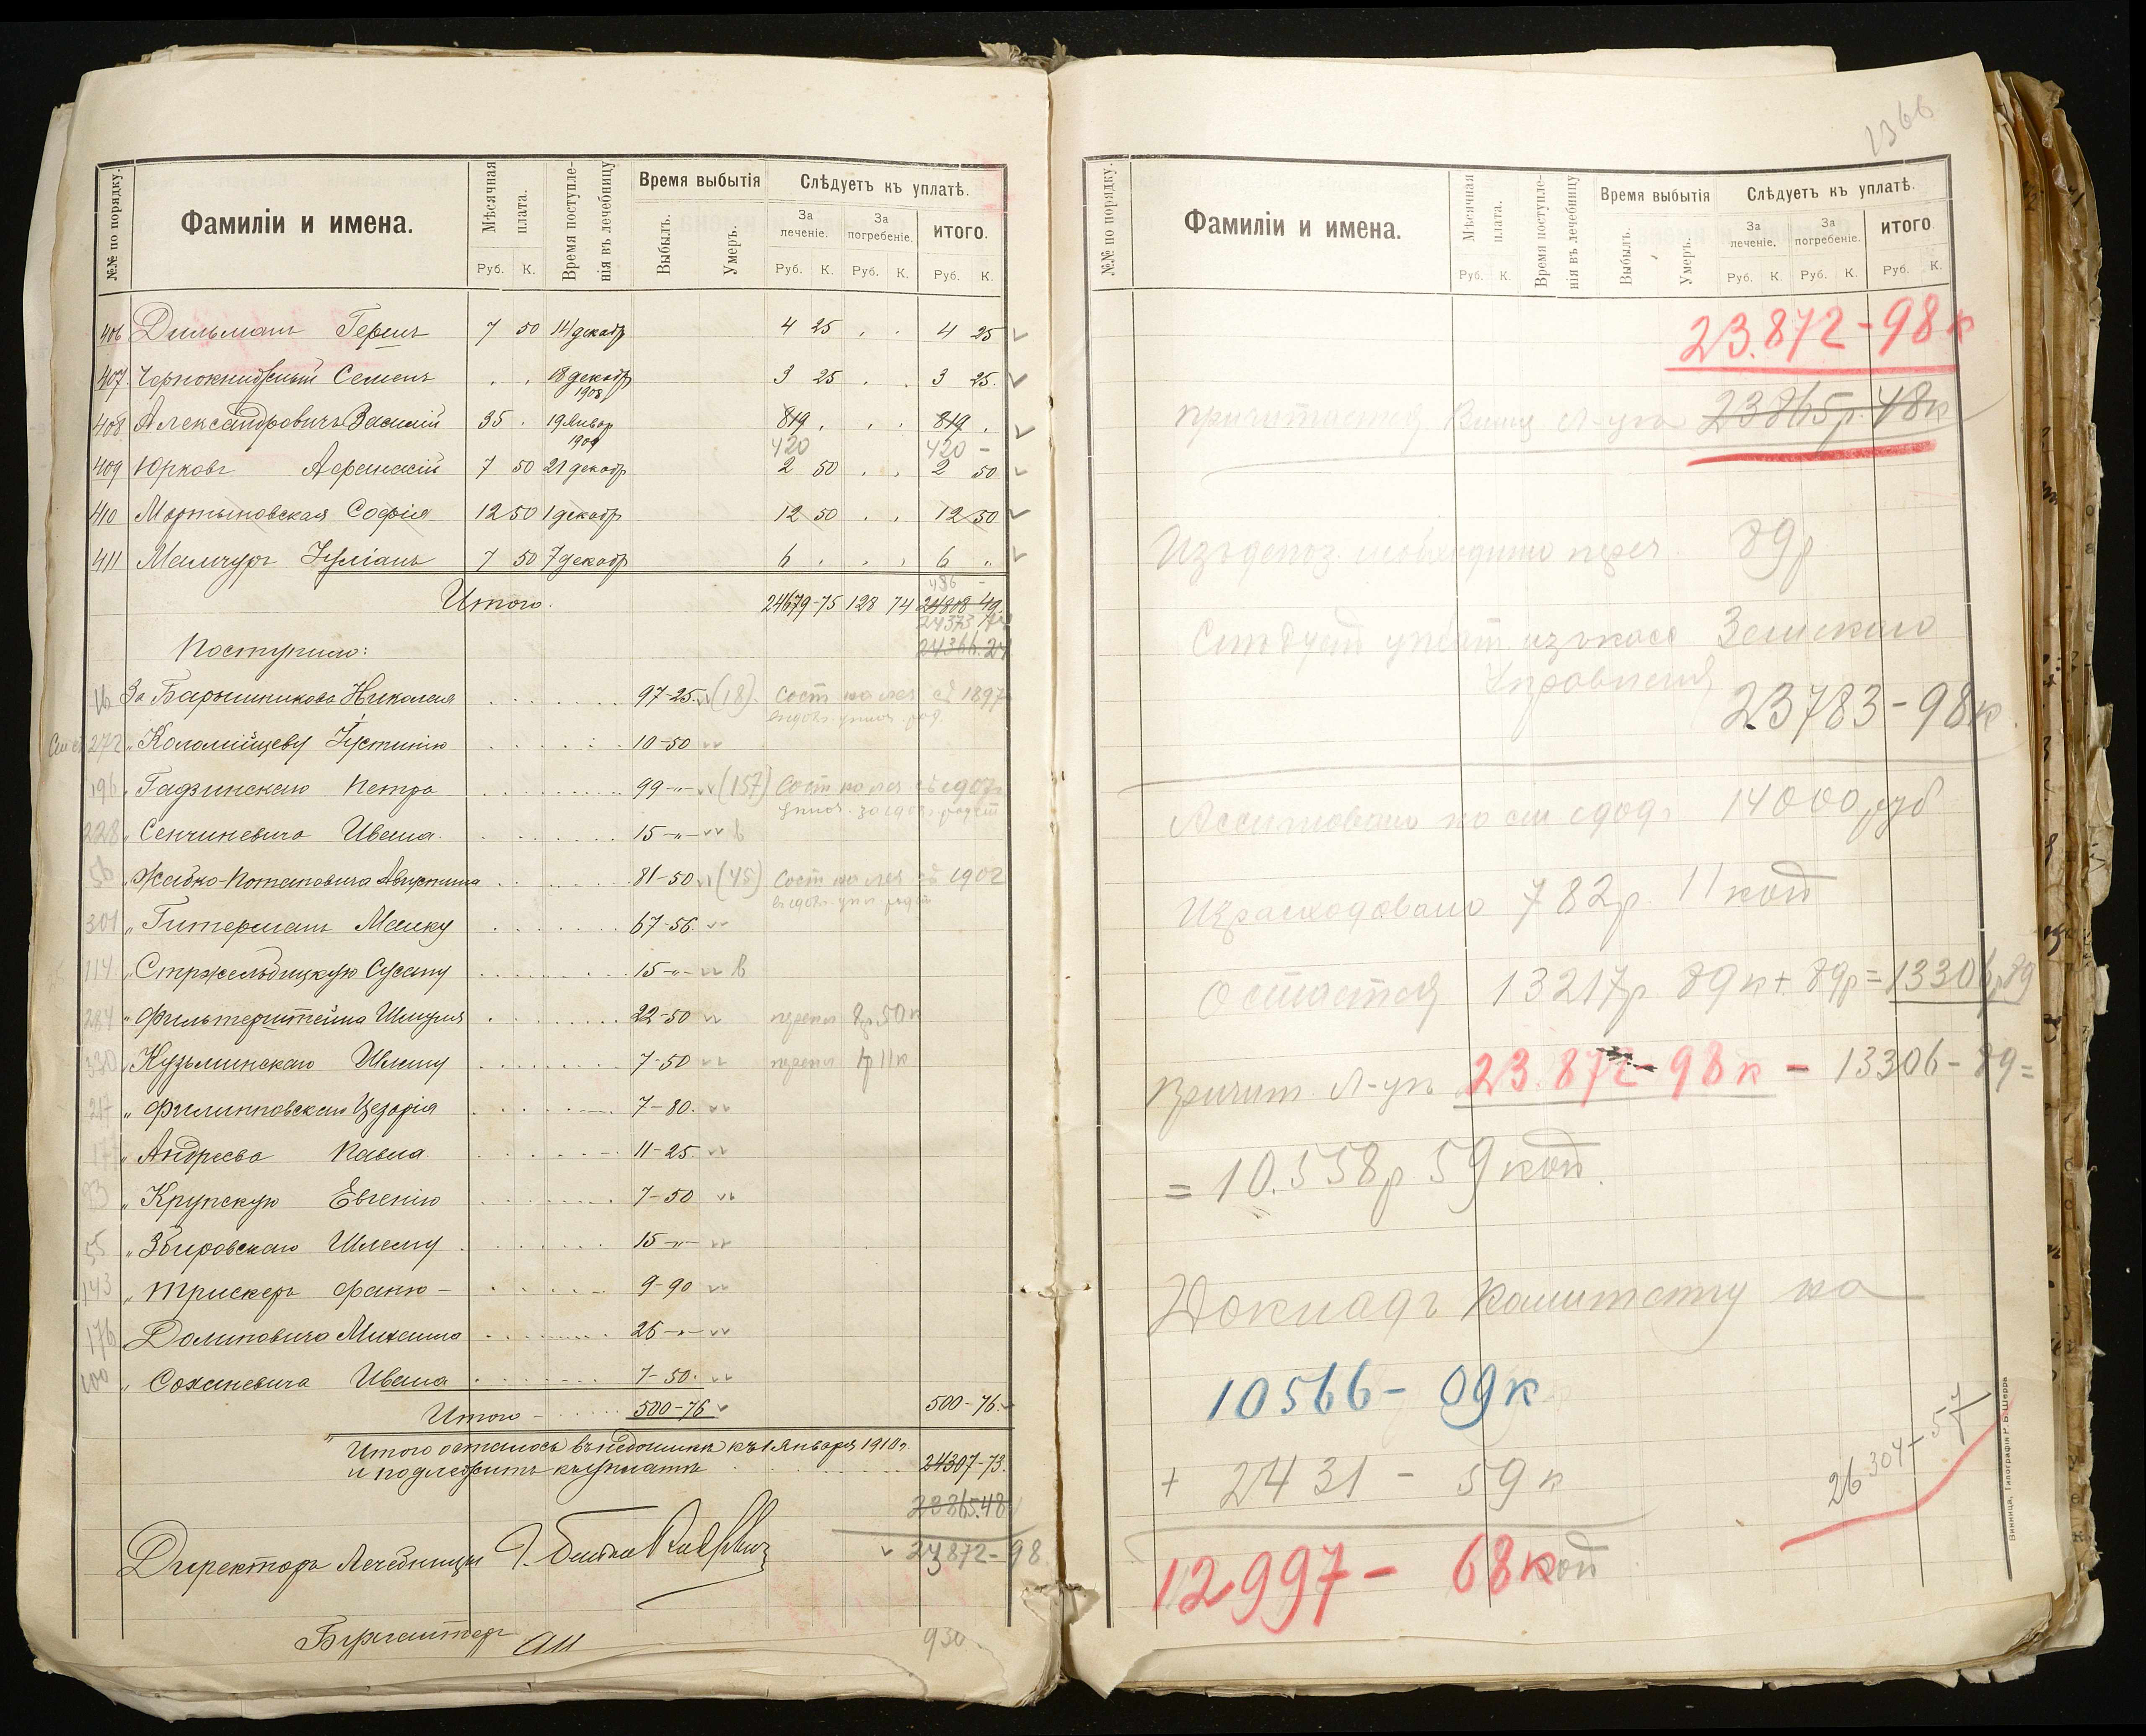 №№ по порядку.
Фамиліи и имена.
Мѣсячная плата.
Руб. К.
Время поступле-
нія въ лечебницу
Время выбытія
Выбылъ.
Умеръ.
Слѣдуетъ къ уплатѣ.
За леченіе.
За погребеніе.
ИТОГО.
Руб. К. Руб. К. Руб. К.
406 Дильманъ Гершъ 7 50 14 декабр 4 25 . . 4 25
407 Чернокнижный Семенъ . . 18 декабр 3 25 . . 3 25.
1908
408 Александровичъ Василій 35 . 19 Январ 819 . . . 819 .
1909 420 420 -
409 Юрковъ Афанасій 7 50 21 декабр 2 50 . . 2 50
410 Мартыновская Софія 12 50 1 декабр 12 50 . . 12 50
411 Мамчуръ Іуліанъ 7 50 7 декабр 6 . . . 6 "
486 -
Итого. 24679-75 128 74 24808 49.
24373 74
Поступило: 24366.24
16 За Барышникова Николая 97-25. (18). Сост на леч съ 1897
272 " Коломійцеву Іустинію 10-50
196 " Гадзинскаго Петра 99-"- (157) Сост на леч съ 1907г
228 " Сенчиневича Ивана. 15-"- в
" Жабко-Потаповича Августина 81-50 (45) Сост на леч съ 1902
301 " Гитерманъ Маску 67-56.
114 " Стржельбицкую Сусану 15-"- в
" Фильтерштейна Шмуля 22-50 перепл 8р.50к
330 " Кузьминскаго Шлему 7-50 перепл 1р 11к
217 " Филипповскаго Цезарія 7-80.
" Андреева Павла 11-25.
93 " Крупскую Евгенію 7-50
55 " Збировскаго Шлему 15-"-
143 " Трискеръ Фаню - 9-90
176 Долиновича Михаила 26-"-
100 " Соханевича Ивана 7-50.
Итого - 500-76 500-76.
Итого осталось въ недоимкѣ къ 1 Января 1910г.
и подлежитъ къ уплатѣ 24307-73.
23865.48
Директоръ Лечебницы 23872-98
Бухгалтеръ 930.
1366
№№ по порядку.
Фамиліи и имена.
Мѣсячная плата.
Руб. К.
Время поступле-
нія въ лечебницу
Время выбытія
Выбылъ.
Умеръ.
Слѣдуетъ къ уплатѣ.
За леченіе.
За погребеніе.
ИТОГО
Руб. К. Руб. К. Руб. К.
23.872-98к
причитается Вин Л-цѣ 23865р.48к
Изъ депоз. необходимо переч. 89р.
Слѣдуетъ уплат. изъ касс Земскаго
Управленія
23783-98к.
Ассигновано по см 1909г 14000 руб
Израсходовано 782р. 11 коп
Остается 13217р. 89к + 89р = 13306р89
Причит. Л-цѣ 23.872-98к - 13306-89=
= 10.558р 59 коп.
Докладъ Комитету на
10566 - 09к
+ 2431 - 59к
26304-57
12997 - 68 коп
Винница, Типографія Р. Б. Шерра